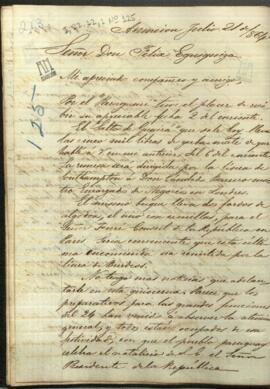 213
2,22,11,1 Nº 125
Asuncion Julio 21 de 1864
Señor Don Felix Egusquiza
125
Mi apreciado compañero y amigo
Por el "Paraguari" tuve el placer de reci
bir su apreciable fecha 2 del corriente.
El "Salto de Guairá" que sale hoy lleva
las cinco mil libras de yerba mate de que
hablé á V. en mi anterior del 6 del corriente.
La remesa será dirigida por la linea de
Southampton á Don Candido Bareiro nuestro
Encargado de Negocios en Londres.
El mismo buque lleva dos fardos de
algodon, el uno con semillas, para el
Señor Consul de la Republica en
Paris. Será conveniente que esta ultima
encomienda sea remitida por la
linea de Burdeos.
No tengo mas noticias que adelan
tarle en esta quincena. Parece que los
preparativos para las grandes funciones
del 24 han venido á absorber la atencion
general, y todos estan ocupados de esa
festividad, con que el pueblo paraguayo
celebra el natalicio de S. E. el Señor
Presidente de la Republica